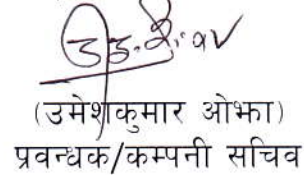 (उमेशकुमार ओझा)
प्रवन्धक/कम्पनी सचिव